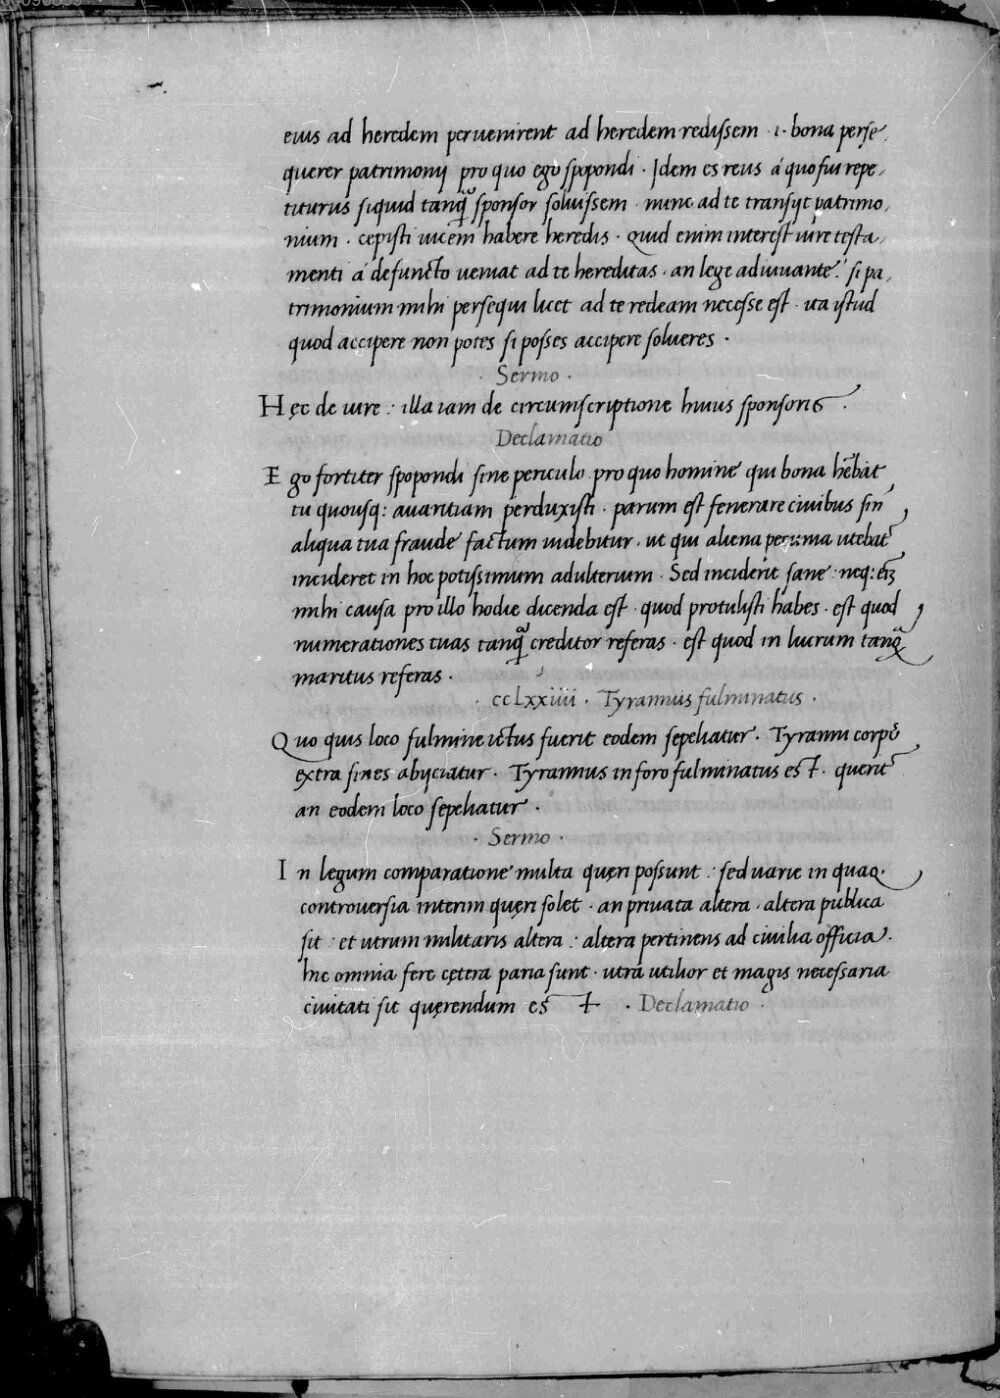 eius ad heredem peruenirent ad heredem redissem · i · bona perse
querer patrimonij pro quo ego spopondi · Idem es reus á quo fui repe
titurus siquid tanq̃ sponsor soluissem · nunc ad te transijt patrimo
nium · cepisti uicem habere heredis · Quid enim interest iure testa
menti á defuncto ueniat ad te hereditas · an lege adiuuante: si pa
trimonium mihi persequi licet ad te redeam necesse est · ita istud
quod accipere non potes si posses accipere solueres ·
· Sermo ·
Hęc de iure : illa iam de circumscriptione huius sponsoris ·
Declamatio
Ego fortiter spopondi sine periculo pro quo homine qui bona hēbat
tu quousq: auaritiam perduxisti · parum est fenerare ciuibus sin
aliqua tua fraude factum uidebitur · ut qui aliena pecunia utebat
incideret in hoc potissimum adulterium · Sed inciderit sane : neq: eīȝ
mihi causa pro illo hodie dicenda est · quod protulisti habes · est quod
numerationes tuas tanq̃ creditor referas · est quod in lucrum tanq̃
maritus referas ·
· ccLxxiiii · Tyrannus fulminatus ·
Quo quis loco fulmine ictus fuerit eodem sepeliatur · Tyranni corp⁹
extra fines abijciatur · Tyrannus in foro fulminatus est · querit
an eodem loco sepeliatur ·
· Sermo ·
In legum comparatione multa quęri possunt : sed uarie in quaq·
controuersia interim quęri solet · an priuata altera · altera publica
sit : et utrum militaris altera : altera pertinens ad ciuilia officia ·
hic omnia fere cętera paria sunt · utra utilior et magis necessaria
ciuitati sit quęrendum est · Declamatio ·